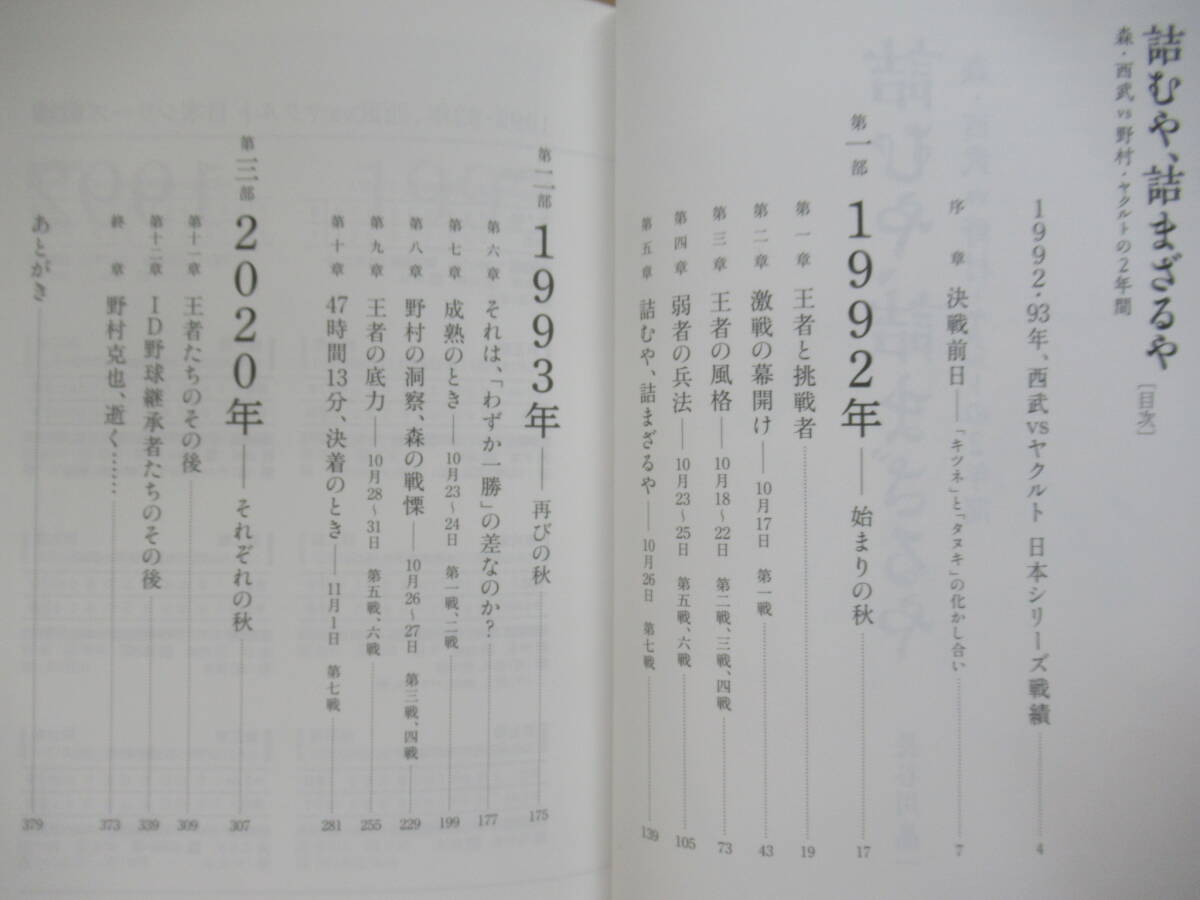 詰むや、詰まざるや [目次]
森・西武 vs 野村・ヤクルトの2年間
1992・93年、西武vsヤクルト 日本シリーズ戦績 4
序章 決戦前日――「キツネ」と「タヌキ」の化かし合い 7
第一部 1992年――始まりの秋 17
第一章 王者と挑戦者 19
第二章 激戦の幕開け――10月17日 第一戦 43
第三章 王者の風格――10月18〜22日 第二戦、三戦、四戦 73
第四章 弱者の兵法――10月23〜25日 第五戦、六戦 105
第五章 詰むや、詰まざるや――10月26日 第七戦 139
第二部 1993年――再びの秋 175
第六章 それは、「わずか一勝」の差なのか? 177
第七章 成熟のとき――10月23〜24日 第一戦、二戦 199
第八章 野村の洞察、森の戦慄――10月26〜27日 第三戦、四戦 229
第九章 王者の底力――10月28〜31日 第五戦、六戦 255
第十章 47時間13分、決着のとき――11月1日 第七戦 281
第三部 2020年――それぞれの秋 307
第十一章 王者たちのその後 309
第十二章 ID野球継承者たちのその後 339
終章 野村克也、逝く…… 373
あとがき 379